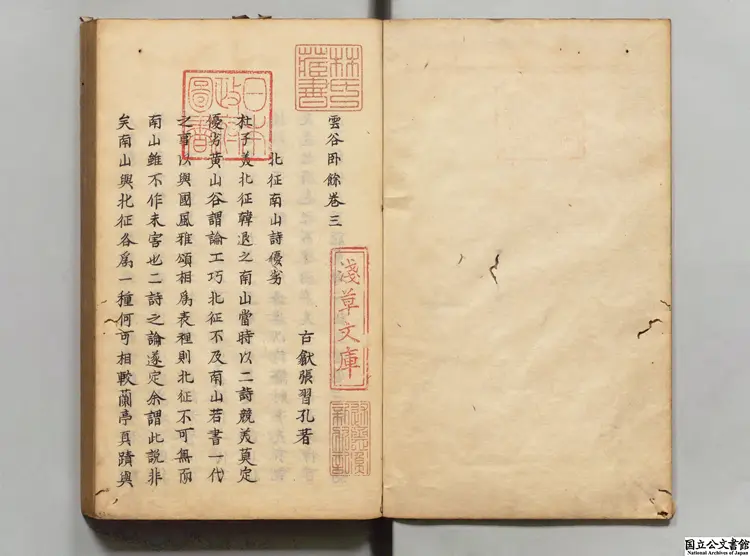 雲谷卧餘卷三
古歙張習孔著
北征南山詩優劣
杜子美北征韓退之南山當時以二詩競美莫定
優劣黄山谷謂論工巧北征不及南山若書一代
之事以與國風雅頌相爲表裡則北征不可無而
南山雖不作未害也二詩之論遂定余謂此說非
矣南山與北征各爲一種何可相較蘭亭真蹟與
林氏藏書
日本政府圖書
淺草文庫
国立公文書館
National Archives of Japan